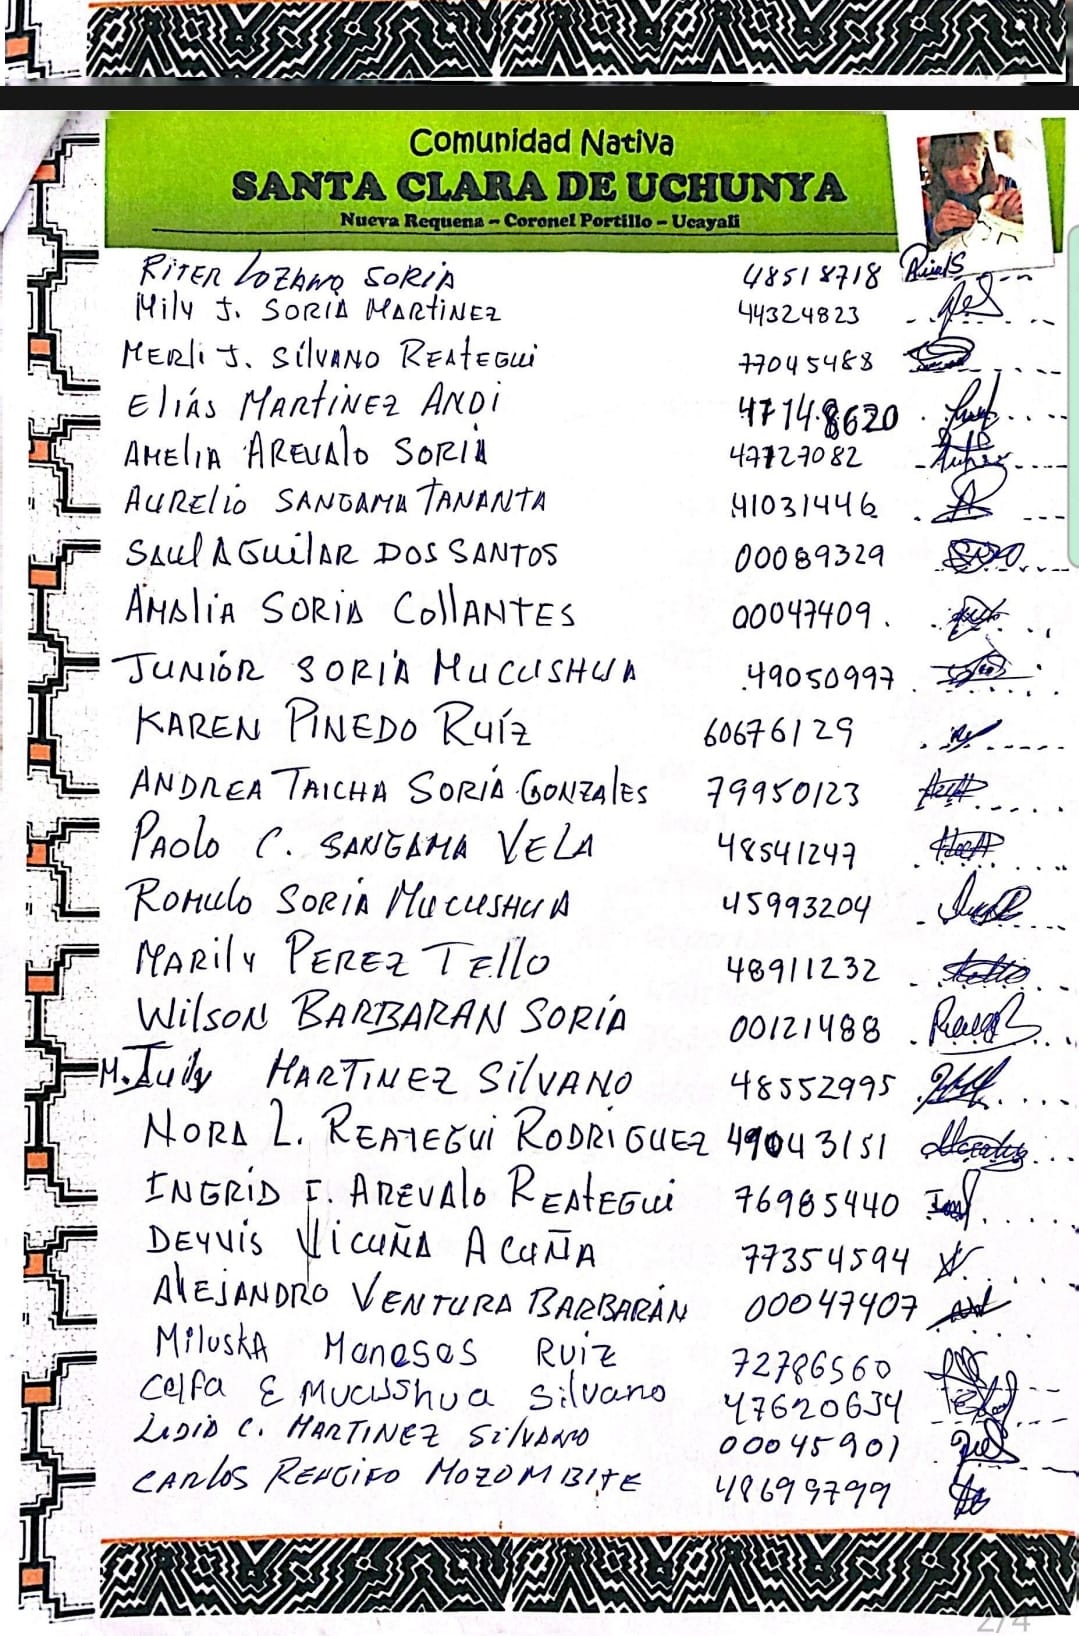 Comunidad Nativa
SANTA CLARA DE UCHUNYA
Nueva Requena – Coronel Portillo – Ucayali
RITER LOZANO SORIA 48518718
Mily J. SORIA MARTINEZ 44324823
MERli J. SilVANO REATEGUi 77045488
Eliás MARTINEZ ANDi 47148620
AMEliA AREVAlO SORIA 47127082
AURELio SANGAMA TANANTA 41031446
SAUl AGUilAR DOS SANTOS 00089329
AMAliA SORIA COllANTES 00047409.
JUNiÓR SORIA MUCUSHUA 49050997
KAREN PINEDO RUíz 60676129
ANDREA TAICHA SORIA GONZALES 79950123
PAOlO C. SANGAMA VELA 48541247
ROMULO SORIA MUCUSHUA 45993204
MARily PEREZ TEllO 48911232
WilSON BARBARAN SORíA 00121488
M. Judy MARTINEZ SilVANO 48552995
NORA L. REATEGUi RODRiGUEZ 49043151
INGRID I. AREVAlO REATEGUi 76985440
DEYVIS VICUÑA ACUÑA 77354594
AlEJANDRO VENTURA BARBARÁN 00047407
MiluskA Maneses Ruiz 72786560
Celfa E Mucushua Silvano 47620634
LIDIA C. MARTINEZ SilVANO 00045901
CARLOS RENGIFO MOZOMBITE 48699799
2/4